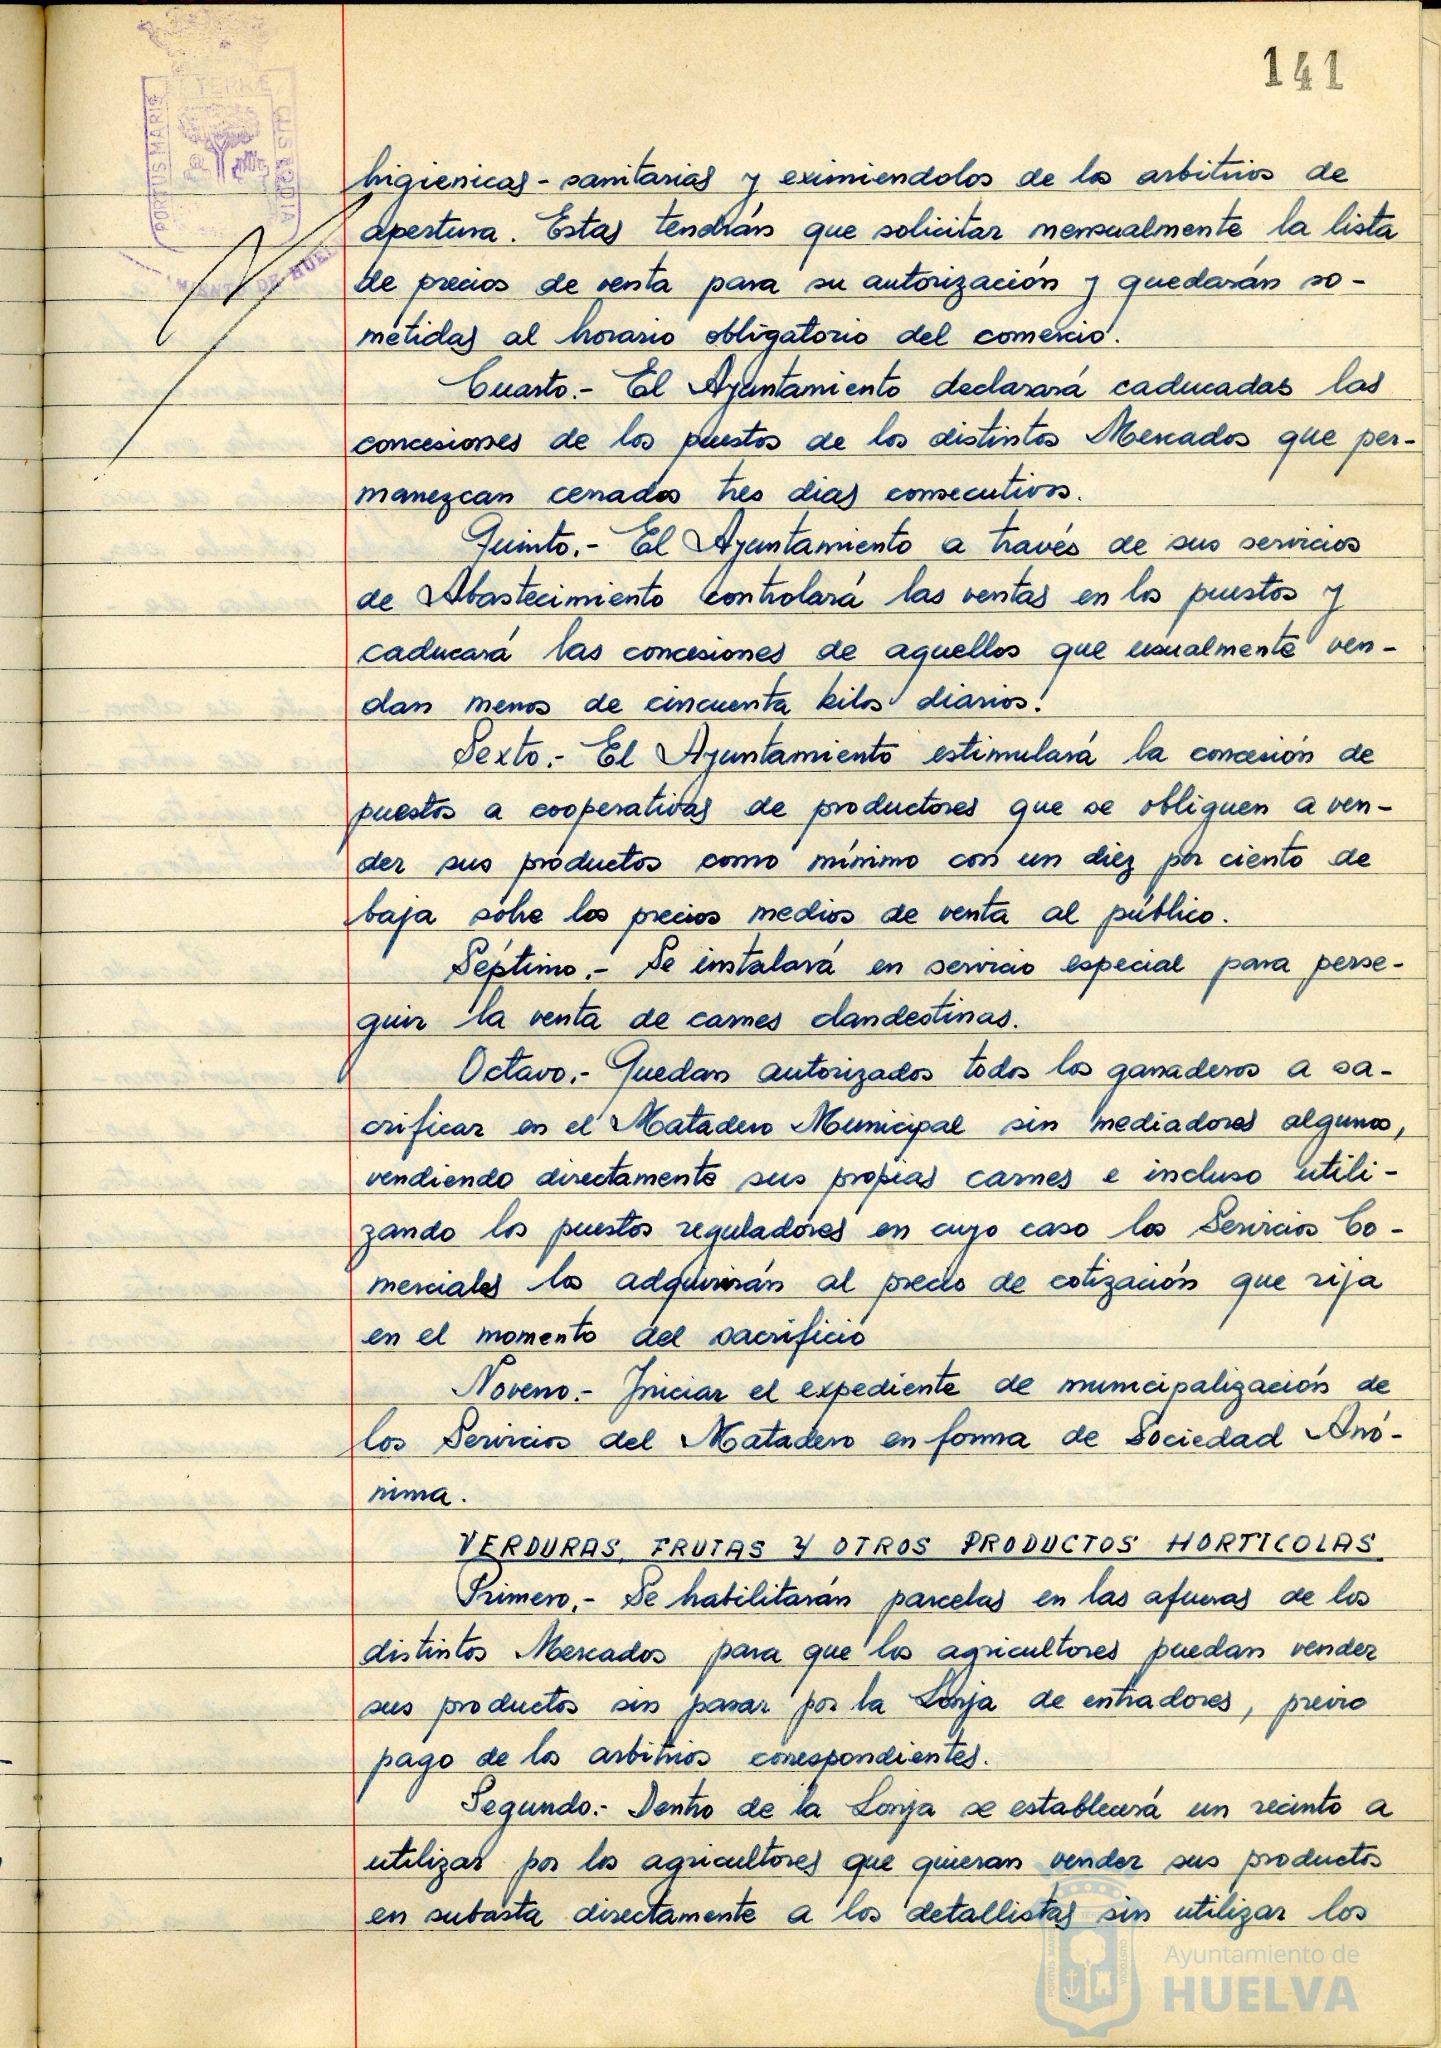 141
PORTUS MARIS
ET TERRAE
CUSTODIA
higienicas-sanitarias y eximiendolos de los arbitrios de
apertura. Estas tendrán que solicitar mensualmente la lista
de precios de venta para su autorización y quedarán so-
metidas al horario obligatorio del comercio.
Cuarto.- El Ayuntamiento declarará caducadas las
concesiones de los puestos de los distintos Mercados que per-
manezcan cerrados tres dias consecutivos.
Quinto.- El Ayuntamiento a través de sus servicios
de Abastecimiento controlará las ventas en los puestos y
caducará las concesiones de aquellos que usualmente ven-
dan menos de cincuenta kilos diarios.
Sexto.- El Ayuntamiento estimulará la concesión de
puestos a cooperativas de productores que se obliguen a ven-
der sus productos como mínimo con un diez por ciento de
baja sobre los precios medios de venta al público.
Séptimo.- Se instalará en servicio especial para perse-
guir la venta de carnes clandestinas.
Octavo.- Quedan autorizados todos los ganaderos a sa-
crificar en el Matadero Municipal sin mediadores algunos,
vendiendo directamente sus propias carnes e incluso utili-
zando los puestos reguladores en cuyo caso los Servicios Co-
merciales los adquirirán al precio de cotización que rija
en el momento del sacrificio
Noveno.- Iniciar el expediente de municipalización de
los Servicios del Matadero en forma de Sociedad Anó-
nima.
VERDURAS, FRUTAS Y OTROS PRODUCTOS HORTICOLAS
Primero.- Se habilitarán parcelas en las afueras de los
distintos Mercados para que los agricultores puedan vender
sus productos sin pasar por la Lonja de entradores, previo
pago de los arbitrios correspondientes.
Segundo.- Dentro de la Lonja se establecerá un recinto a
utilizar por los agricultores que quieran vender sus productos
en subasta directamente a los detallistas sin utilizar los
Ayuntamiento de
HUELVA